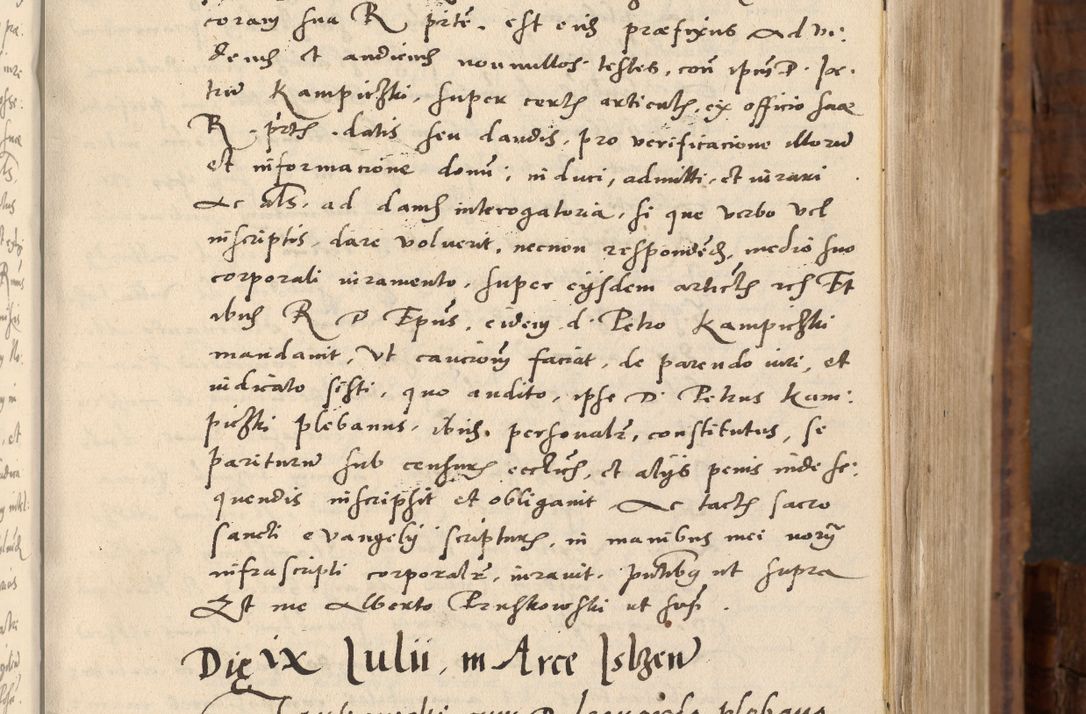 coram sua R prte. est eius præfixus ad vi:
dend et audiend nonnullos testes, con ipm D. Pe-
trū Kampiczki, super certis articulis, ex officio suæ
R. prtis. datis seu dandis, pro verificacione illorū
et informacione domi; induci, admitti, et iurari
ac als, ad dand interogatoria, si que verbo vel
inscriptis, dare voluerit, necnon respondend, medio suo
corporali iuramento, super eijsdem articlis rcs Et
ibid R D Epus, eidem d. Petro Kampiczki
mandauit, Vt caucionem faciat, de parendo iuri, et
iudicato sisti, quo audito, ipse D. Petrus Kam:
piczki plebanus, ibid. personalr, constitutus, se
pariturū sub censuris ecclicis, et alijs penis inde se:
quendis inscripsit et obligauit Ac tactis sacro
sancti evangelij scripturis, in manibus mei norij
infrascripti corporalr, iurauit. pntibus ut supra
Est me Alberto Pruskowski ut sup.
Die IX Iulii, in Arce Islzen